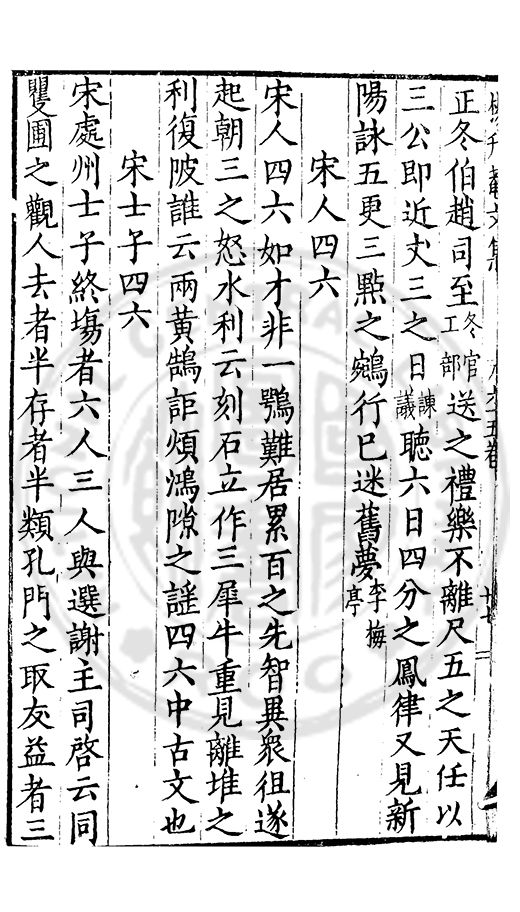 正冬伯趙司至冬官工部送之禮樂不離尺五之天任以
三公即近丈三之日諫議聽六日四分之鳳律又見新
陽詠五更三點之鵷行已迷舊夢李梅亭
宋人四六
宋人四六如才非一鶚難居累百之先智異衆狙遂
起朝三之怒水利云刻石立作三犀牛重見離堆之
利復陂誰云兩黃鵠詎煩鴻隙之謡四六中古文也
宋士子四六
宋處州士子終塲者六人三人與選謝主司啓云同
矍圃之觀人去者半存者半類孔門之取友益者三